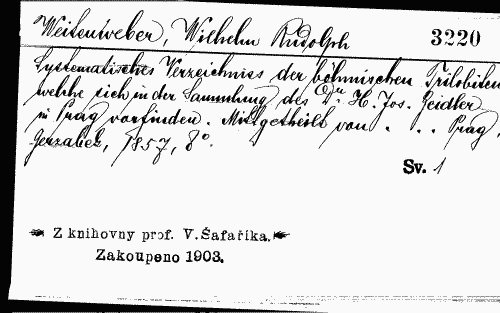 Weitenweber, Wilhelm Rudolph 3220
Systematisches Verzeichniss der böhmischen Trilobiten
welche sich in der Sammlung des Dr. H. Jos. Zeidler
in Prag vorfinden. Mitgetheilt von . . . Prag,
Jerzabek, 1857, 8°.
Sv. 1
Z knihovny prof. V. Šafaříka.
Zakoupeno 1903.